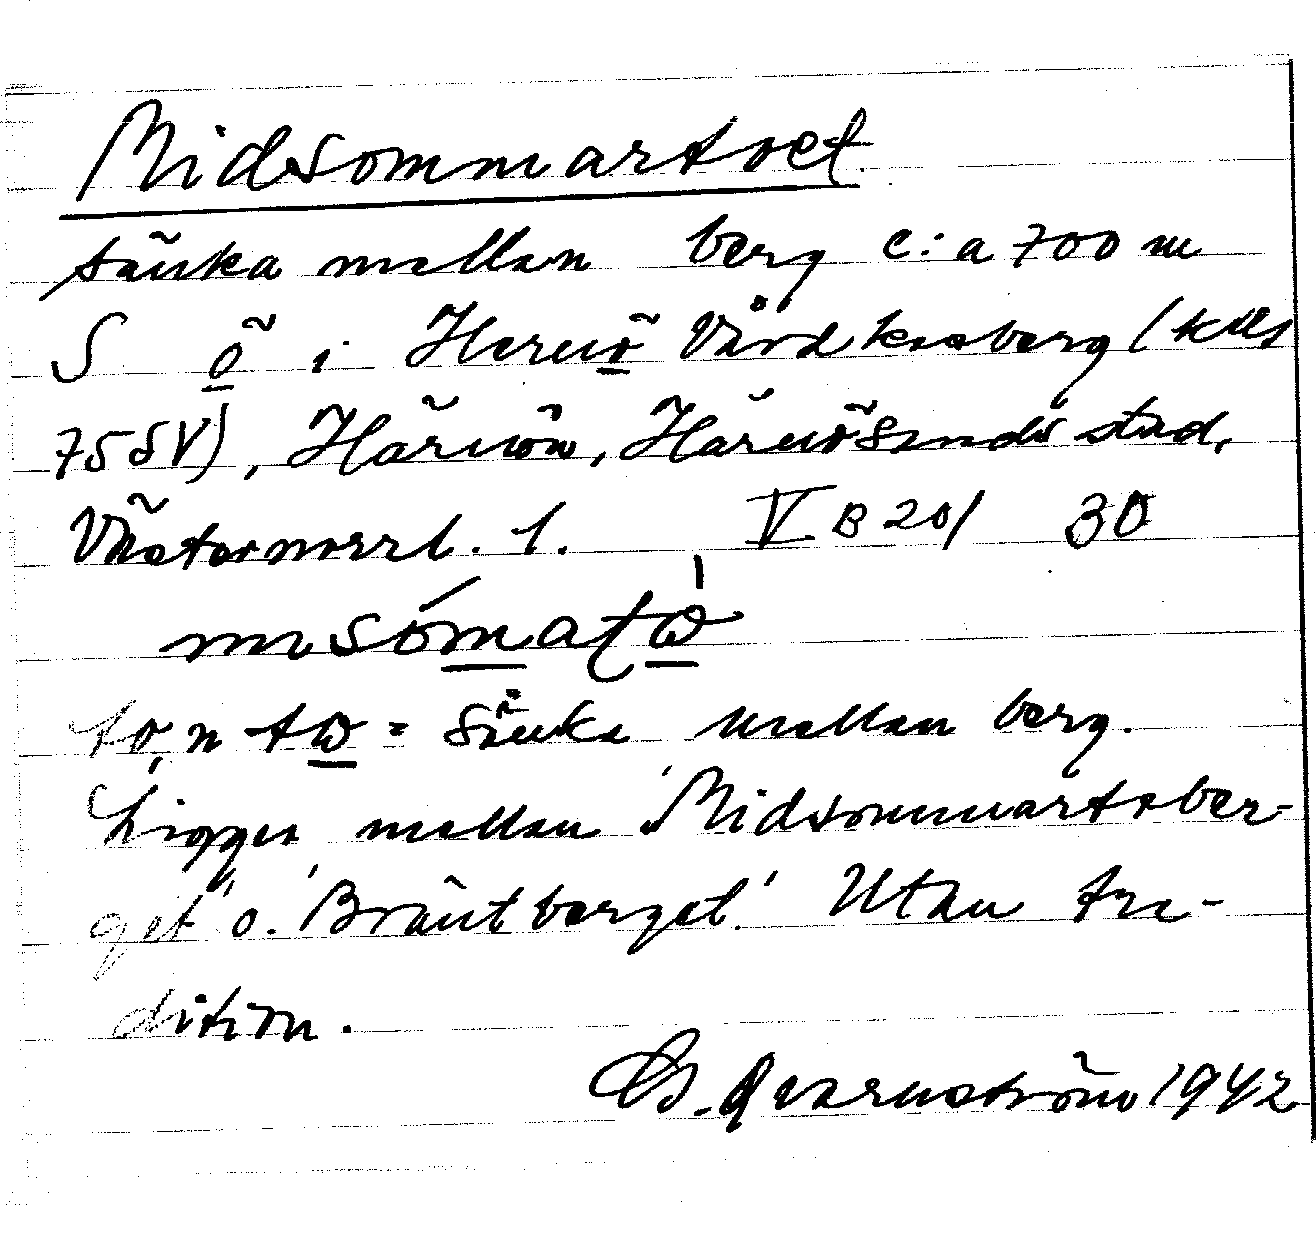 Midsommartoet
sänka mellan berg c:a 700 m
S ö i Hernö Vårdkasberg (KBl
75 SV), Härnön, Härnösands stad,
Västernorrl. l. V B 20/ 30
mısómatὼ
to, n tω = sänka mellan berg.
Ligger mellan 'Midsommartober-
get' o. 'Bräntberget.' Utan tra-
dition.
B. Qvarnström 1942